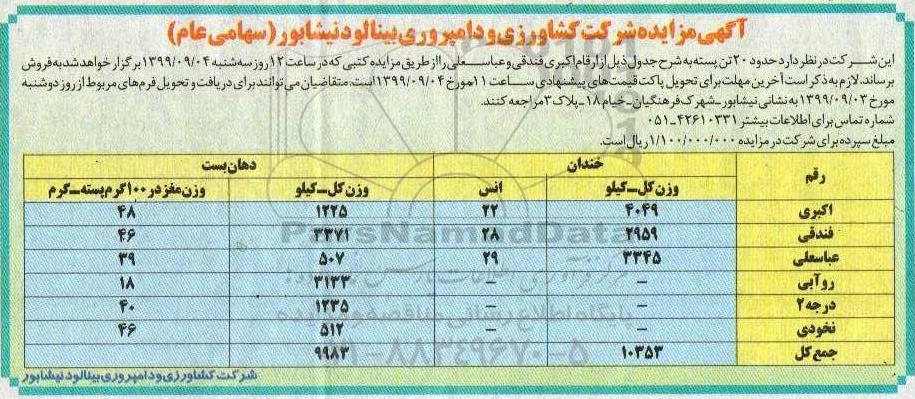 آگهی مزایده شرکت کشاورزی و دامپروری بینالود نیشابور (سهامی عام)
این شرکت در نظر دارد حدود ۲۰ تن پسته به شرح جدول ذیل از ارقام اکبری فندقی و عباسعلی را از طریق مزایده کتبی که در ساعت ۱۲ روز سه شنبه ۱۳۹۹/۰۹/۰۴ برگزار خواهد شد به فروش
برساند. لازم به ذکر است آخرین مهلت برای تحویل پاکت قیمت های پیشنهادی ساعت ۱۱ مورخ ۱۳۹۹/۰۹/۰۴ است. متقاضیان می توانند برای دریافت و تحویل فرم های مربوط از روز دوشنبه
مورخ ۱۳۹۹/۰۹/۰۳ به نشانی نیشابور - شهرک فرهنگیان - خیام ۱۸ - پلاک ۳ مراجعه کنند.
شماره تماس برای اطلاعات بیشتر ۴۲۶۱۰۳۳۱-۰۵۱
مبلغ سپرده برای شرکت در مزایده ۱/۱۰۰/۰۰۰/۰۰۰ ریال است.
رقم خندان دهان بست
وزن کل - کیلو انس وزن کل - کیلو وزن مغز در ۱۰۰ گرم پسته - گرم
اکبری ۴۰۴۹ ۲۲ ۱۲۲۵ ۴۸
فندقی ۲۹۵۹ ۲۸ ۳۳۷۱ ۴۶
عباسعلی ۳۳۴۵ ۲۹ ۵۰۷ ۳۹
روآبی - - ۳۱۳۳ ۱۸
درجه ۲ - - ۱۲۳۵ ۴۰
نخودی - - ۵۱۲ ۴۶
جمع کل ۱۰۳۵۳ ۹۹۸۳
شرکت کشاورزی و دامپروری بینالود نیشابور
ParsNamadData
پایگاه اطلاع رسانی مناقصه و مزایده
۰۲۱-۸۸۳۴۹۶۷۰-۵